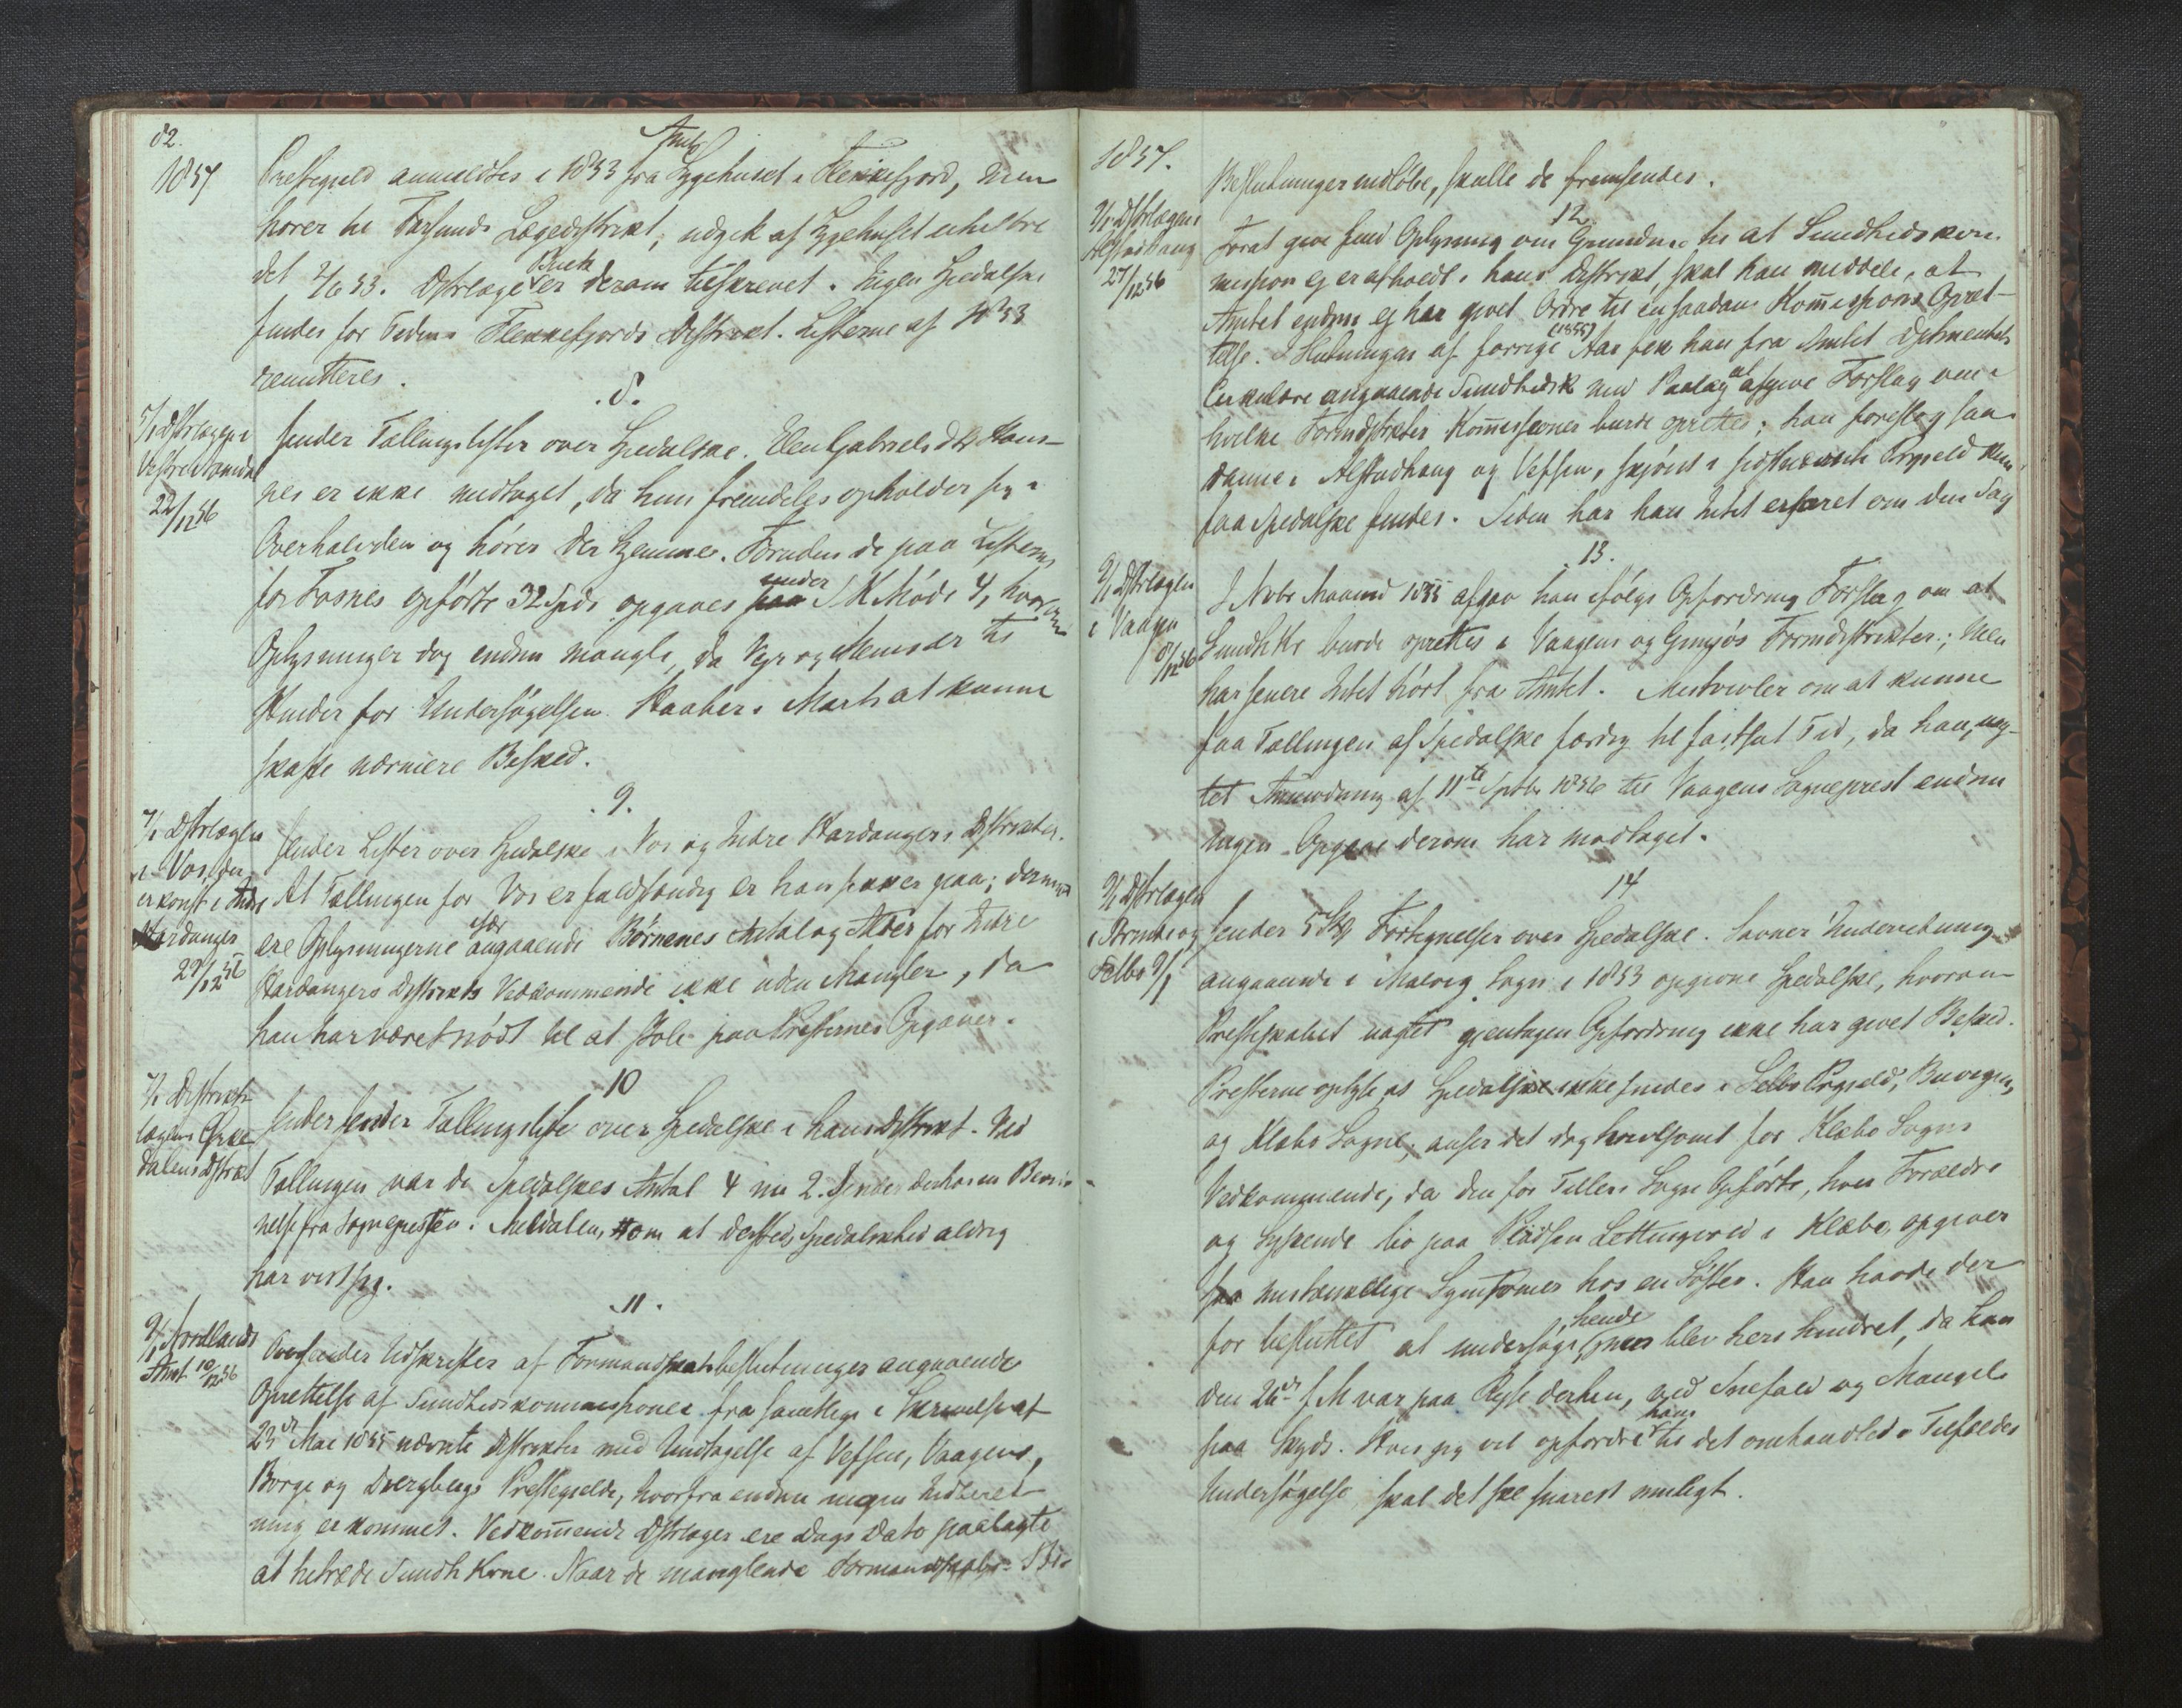 82.
1857
Præstegjeld anmeldtes i 1853 fra Amts Sygehuset i Flekkefjord, men
hører til Farsunds Lægedistrikt, udgik af Sygehuset uhelbre
det 2/6 53. Dstrlæge Buck er derom tilskrevet. Ingen Spedalske
findes for Tiden i Flekkefjords Distrikt. Listerne af 1853
remitteres.
8.
5/1 Dstrlægen
Vestre Namdal
22/12 56
Sender Tællingslister over Spedalske. Elen Gabrielsdtr Hans-
nes er ikke medtaget, da hun fremdeles opholder sig i
Overhalvden og hører der hjemme. Foruden de paa Listerne
for Fosnes opførte 32 Spds. opgaves under S K Møde 4, hvorom
Oplysninger dog endnu mangle, da Veir og Menföre til
Hinder for Undersøgelsen. Haaber i Marts at kunne
skaffe nærmere Besked.
9.
7/1 Dstrlægen
i Vos, der
er konst. i Indre
Hardanger
29/12 56
Sender Lister over Spedalske i Vos og Indre Hardangers Distrikter.
At Tællingen for Vos er fuldstændig er han sikker paa; dermod
ere Oplysningerne især angaaende Børnenes Antal og Alder for Indre
Hardangers Distrikts Vedkommende ikke uden Mangler, da
han har været nødt til at stole paa Præsternes Opgaver.
10
7/1 Distrikts
lægen Orke
dalens Dstrikt
Sender Tællingsliste over Spedalske i hans Distrikt. Ved
Tællingen var de Spedalskes Antal 4 nu 2. Sender derhos en Bevid-
nelse fra Sognepresten i Meldalen, om at dersteds Spedalskhed aldrig
har vist sig.
11.
9/1 Nordlands
Amt 10/12 56
Oversender Udskrifter af Formandskabsbeslutninger angaaende
Oprettelse af Sundhedskommissioner fra samtlige i Skrivelse af
23de Mai 1855 nævnte Distrikter med Undtagelse af Vefsen, Vaagens,
Borge og Dverbergs Præstegjelde, hvorfra endnu ingen Indberet
ning er kommet. Vedkommende Dstrlæger ere Dags Dato paalagte
at tiltræde Sundh Kvne. Naar de manglende Formandskabs- Be-
1857.
Beslutninger indløbe, skulle de fremsendes.
12
9/1 Dstrlægen
Alstadhaug
27/12 56
Forat give fuld Oplysning om Grunden til at Sundhedskom
mission ej er afholdt i hans Distrikt, skal han meddele, at
Amtet endnu ej har givet Ordre til en saadan Kommissions Opret-
telse. I Slutningen af forrige (1855) Aar fik han fra Amtet Dptmentets
Cirkulære angaaende Sundhedsk med Paalæg at afgive Forslag om i
hvilke Formdstrikter Kommissioner burde oprettes; han foreslog saa
danne i Alstadhaug og Vefsen, skjønt i sidstnævnte Prgjeld kun
faa Spedalske findes. Siden har han Intet erfaret om den Sag
13.
9/1 Dstrlægen
i Vaagen
8/12 56
I Novbr Maaned 1855 afgav han ifølge Opfordring Forslag om at
Sundhkr burde oprettes i Vaagens og Gimsøs Formdistrikter; Men
har senere Intet hört fra Amtet. Mistvivler om at kunne
faa Tællingen af Spedalske færdig til fastsat Tid, da han, uag-
tet Anmodning af 11te Septbr 1856 til Vaagens Sogneprest endnu
ingen Opgave derom har modtaget.
14
9/1 Dstrlægen
i Strinde og
Selbo 7/1
Sender 5 Stk Fortegnelser over Spedalske. Savner Underretning
angaaende i Malvig Sogn i 1853 opgivne Spedalske, hvorom
Presteskabet uagtet gjentagen Opfordring ikke har givet Besked.
Presterne oplyse at Spedalske ikke findes i Selbo Prgjeld, Buvigens
og Klæbo Sogne, anser det dog tvivlsomt for Klæbo Sogns
Vedkommende, da den for Tillers Sogn Opførte, hvis Forældre
og Syskende bo paa Pladsen Lettingvold i Klæbo, opgiver
mistænkelige Symptomer hos en Søster. Han havde der
for besluttet at undersøge hende, men blev heri hindret, da han
den 26de f M var paa Reise derhen, ved Snefald og Mangel
paa Skyds. Hvis jeg vil opfordre ham til det omhandlede Tilfældes
Undersøgelse, skal det ske snarest muligt.